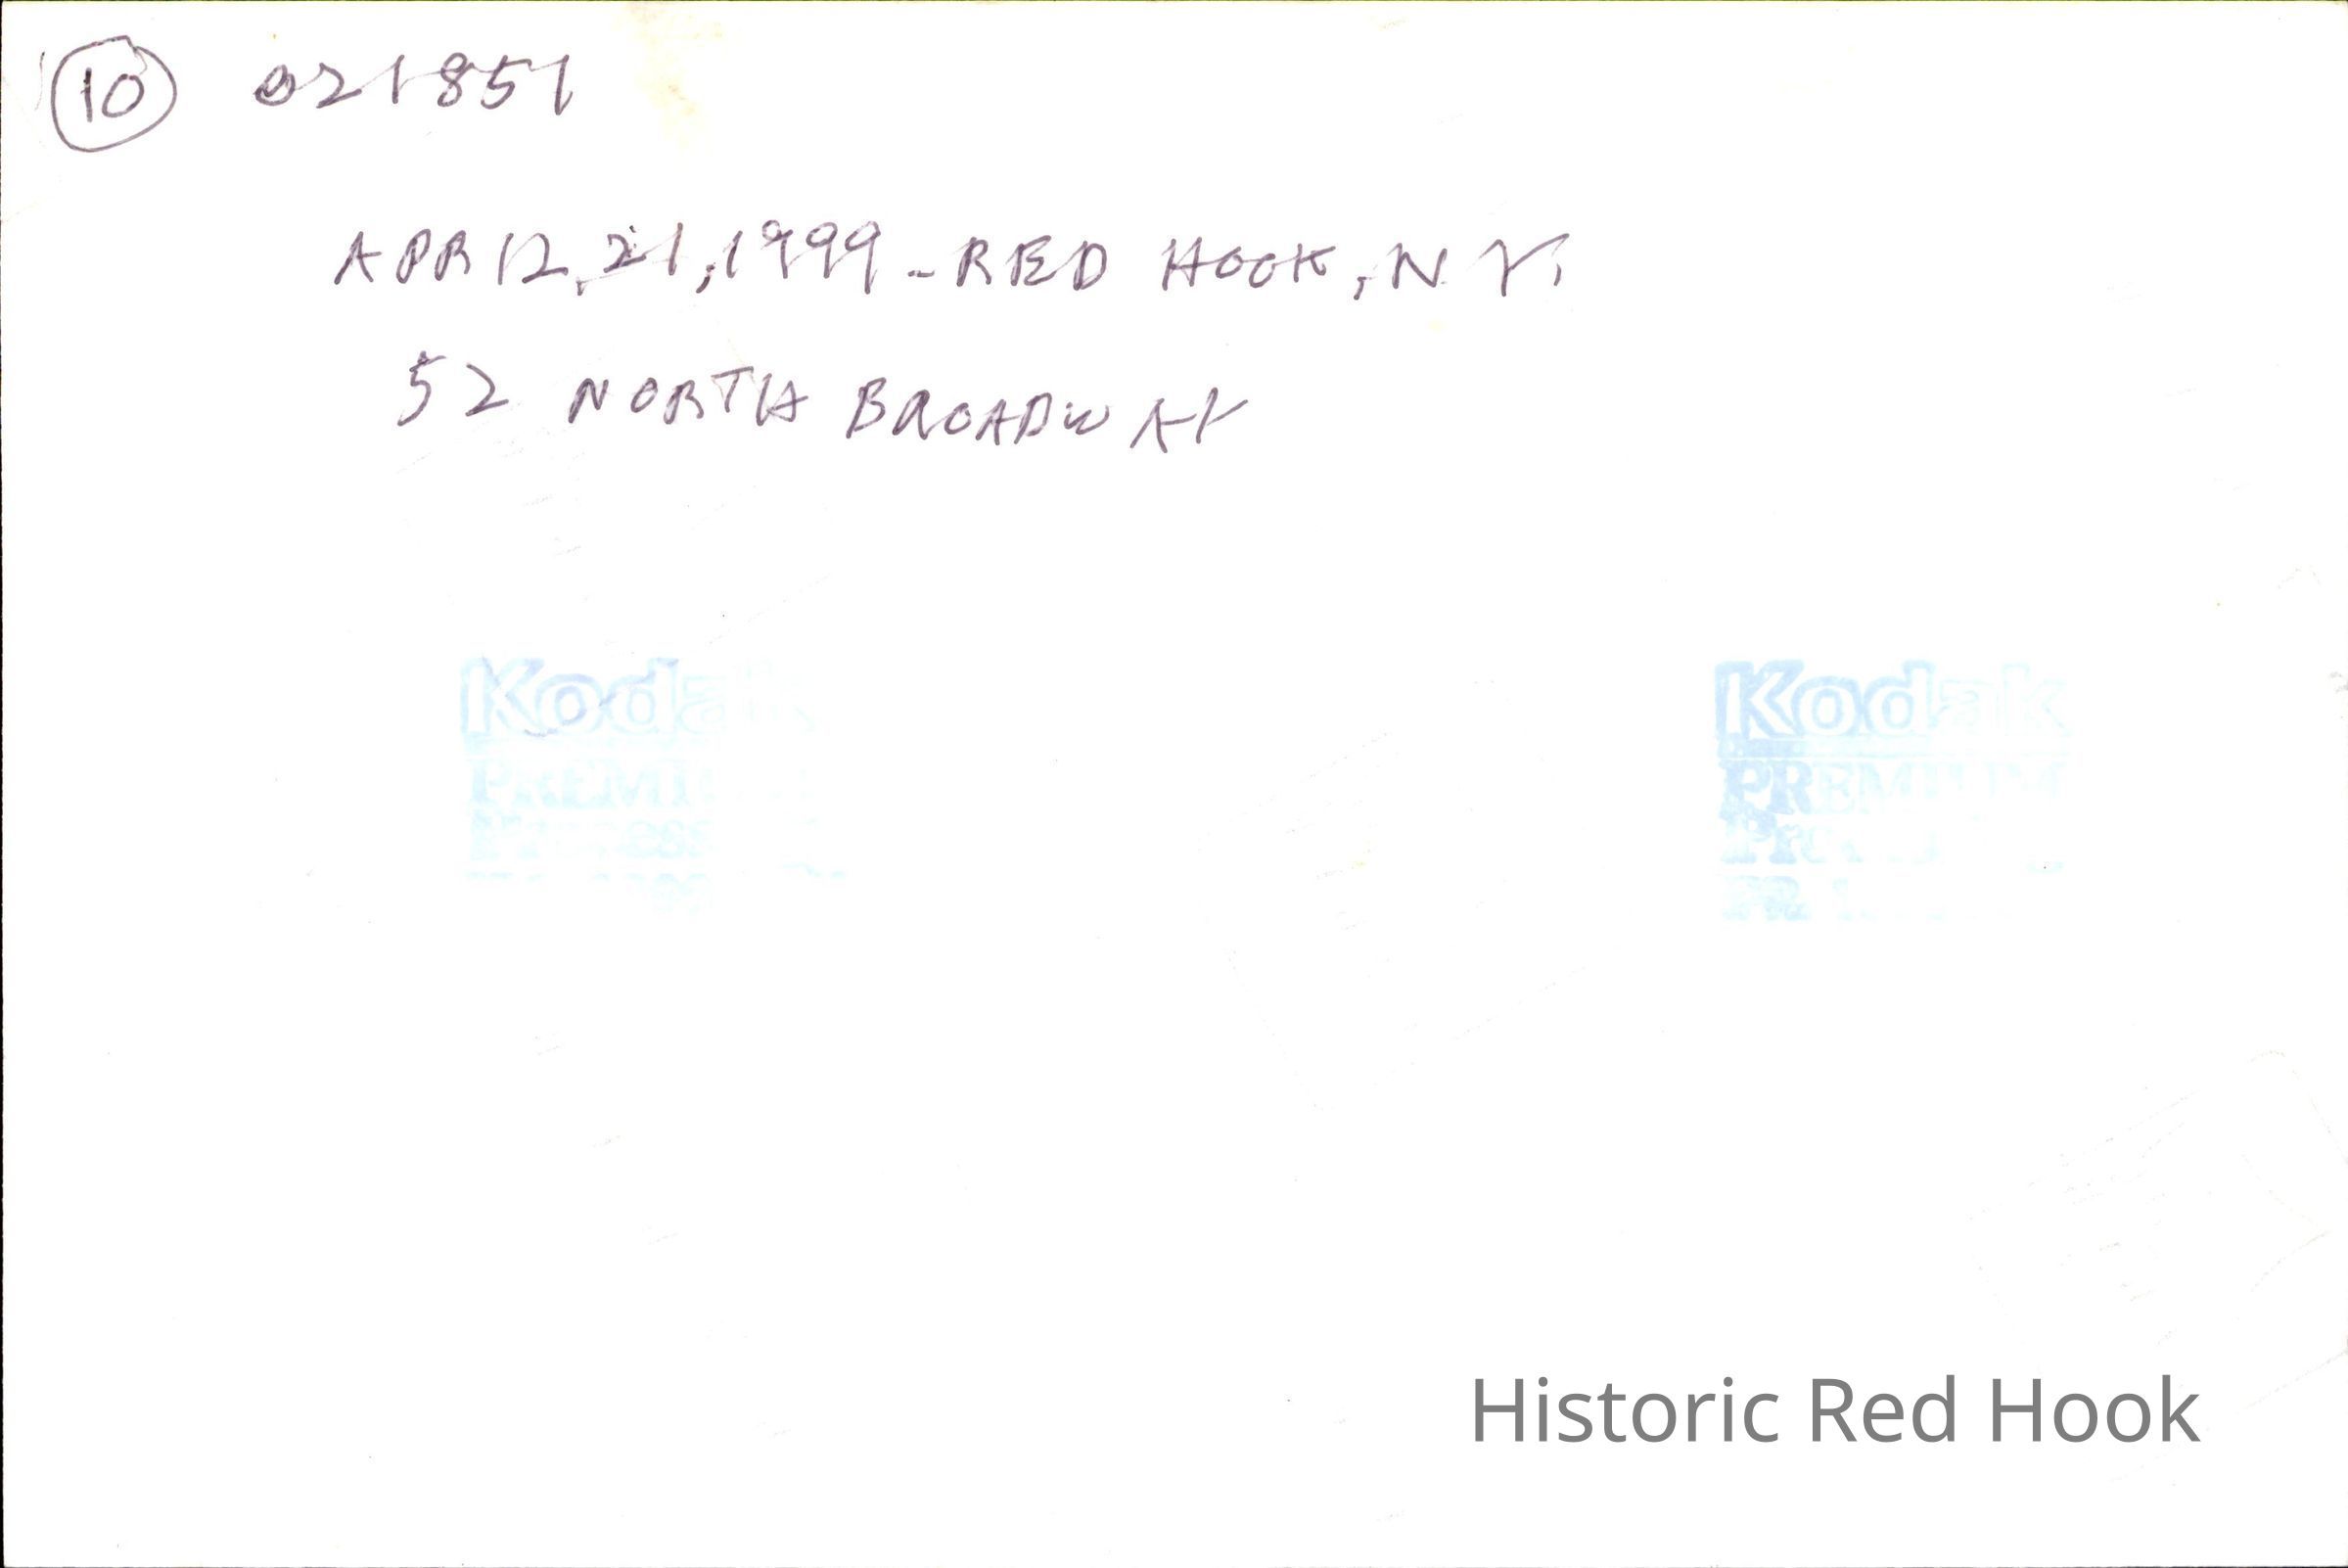 10 021851
APRIL 21, 1999 - RED HOOK, N.Y.
52 NORTH BROADWAY
Kodak Kodak
PREMIUM
Historic Red Hook